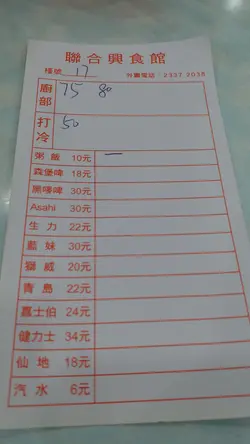 聯合興食館
檯號 17 外賣電話：2337 2038
廚部 75 80
打冷 50
粥飯 10元 一
森堡啤 18元
黑嘜啤 30元
Asahi 30元
生力 22元
藍妹 30元
獅威 20元
青島 22元
嘉士伯 24元
健力士 34元
仙地 18元
汽水 6元